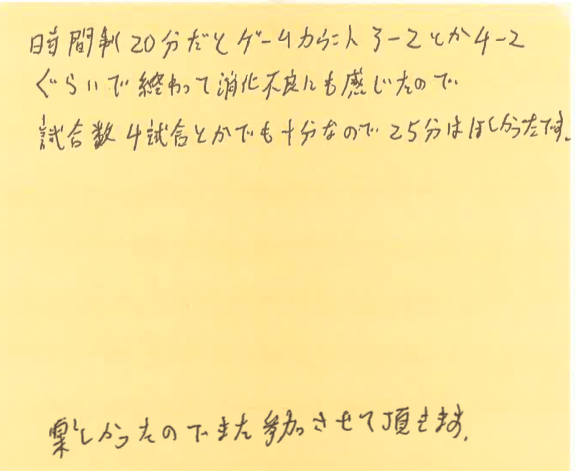 時間制20分だとゲームカウント3-2とか4-2
ぐらいで終わって消化不良にも感じたので
試合数4試合とかでも十分なので25分はほしかったです。
楽しかったのでまた参加させて頂きます。